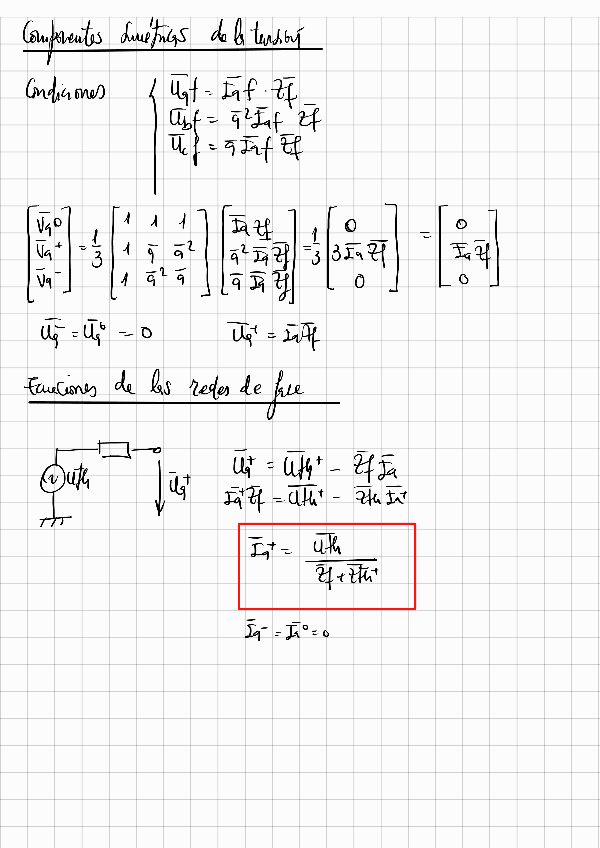 Componentes simétricas de la tensión
Condiciones { U̅af = I̅af · Z̅f
U̅bf = a̅² I̅af Z̅f
U̅cf = a̅ I̅af Z̅f
[V̅a⁰ V̅a⁺ V̅a⁻] = 1/3 [1 1 1; 1 a̅ a̅²; 1 a̅² a̅] [I̅a Z̅f; a̅² I̅a Z̅f; a̅ I̅a Z̅f] = 1/3 [0; 3 I̅a Z̅f; 0] = [0; I̅a Z̅f; 0]
U̅a⁻ = U̅a⁰ = 0 U̅a⁺ = I̅a Z̅f
Ecuaciones de las redes de fase
Uth U̅a⁺
U̅a⁺ = U̅th⁺ - Z̅f I̅a
I̅a⁺ Z̅f = U̅th⁺ - Z̅th I̅a⁺
I̅a⁺ = U̅th / (Z̅f + Z̅th⁺)
I̅a⁻ = I̅a⁰ = 0